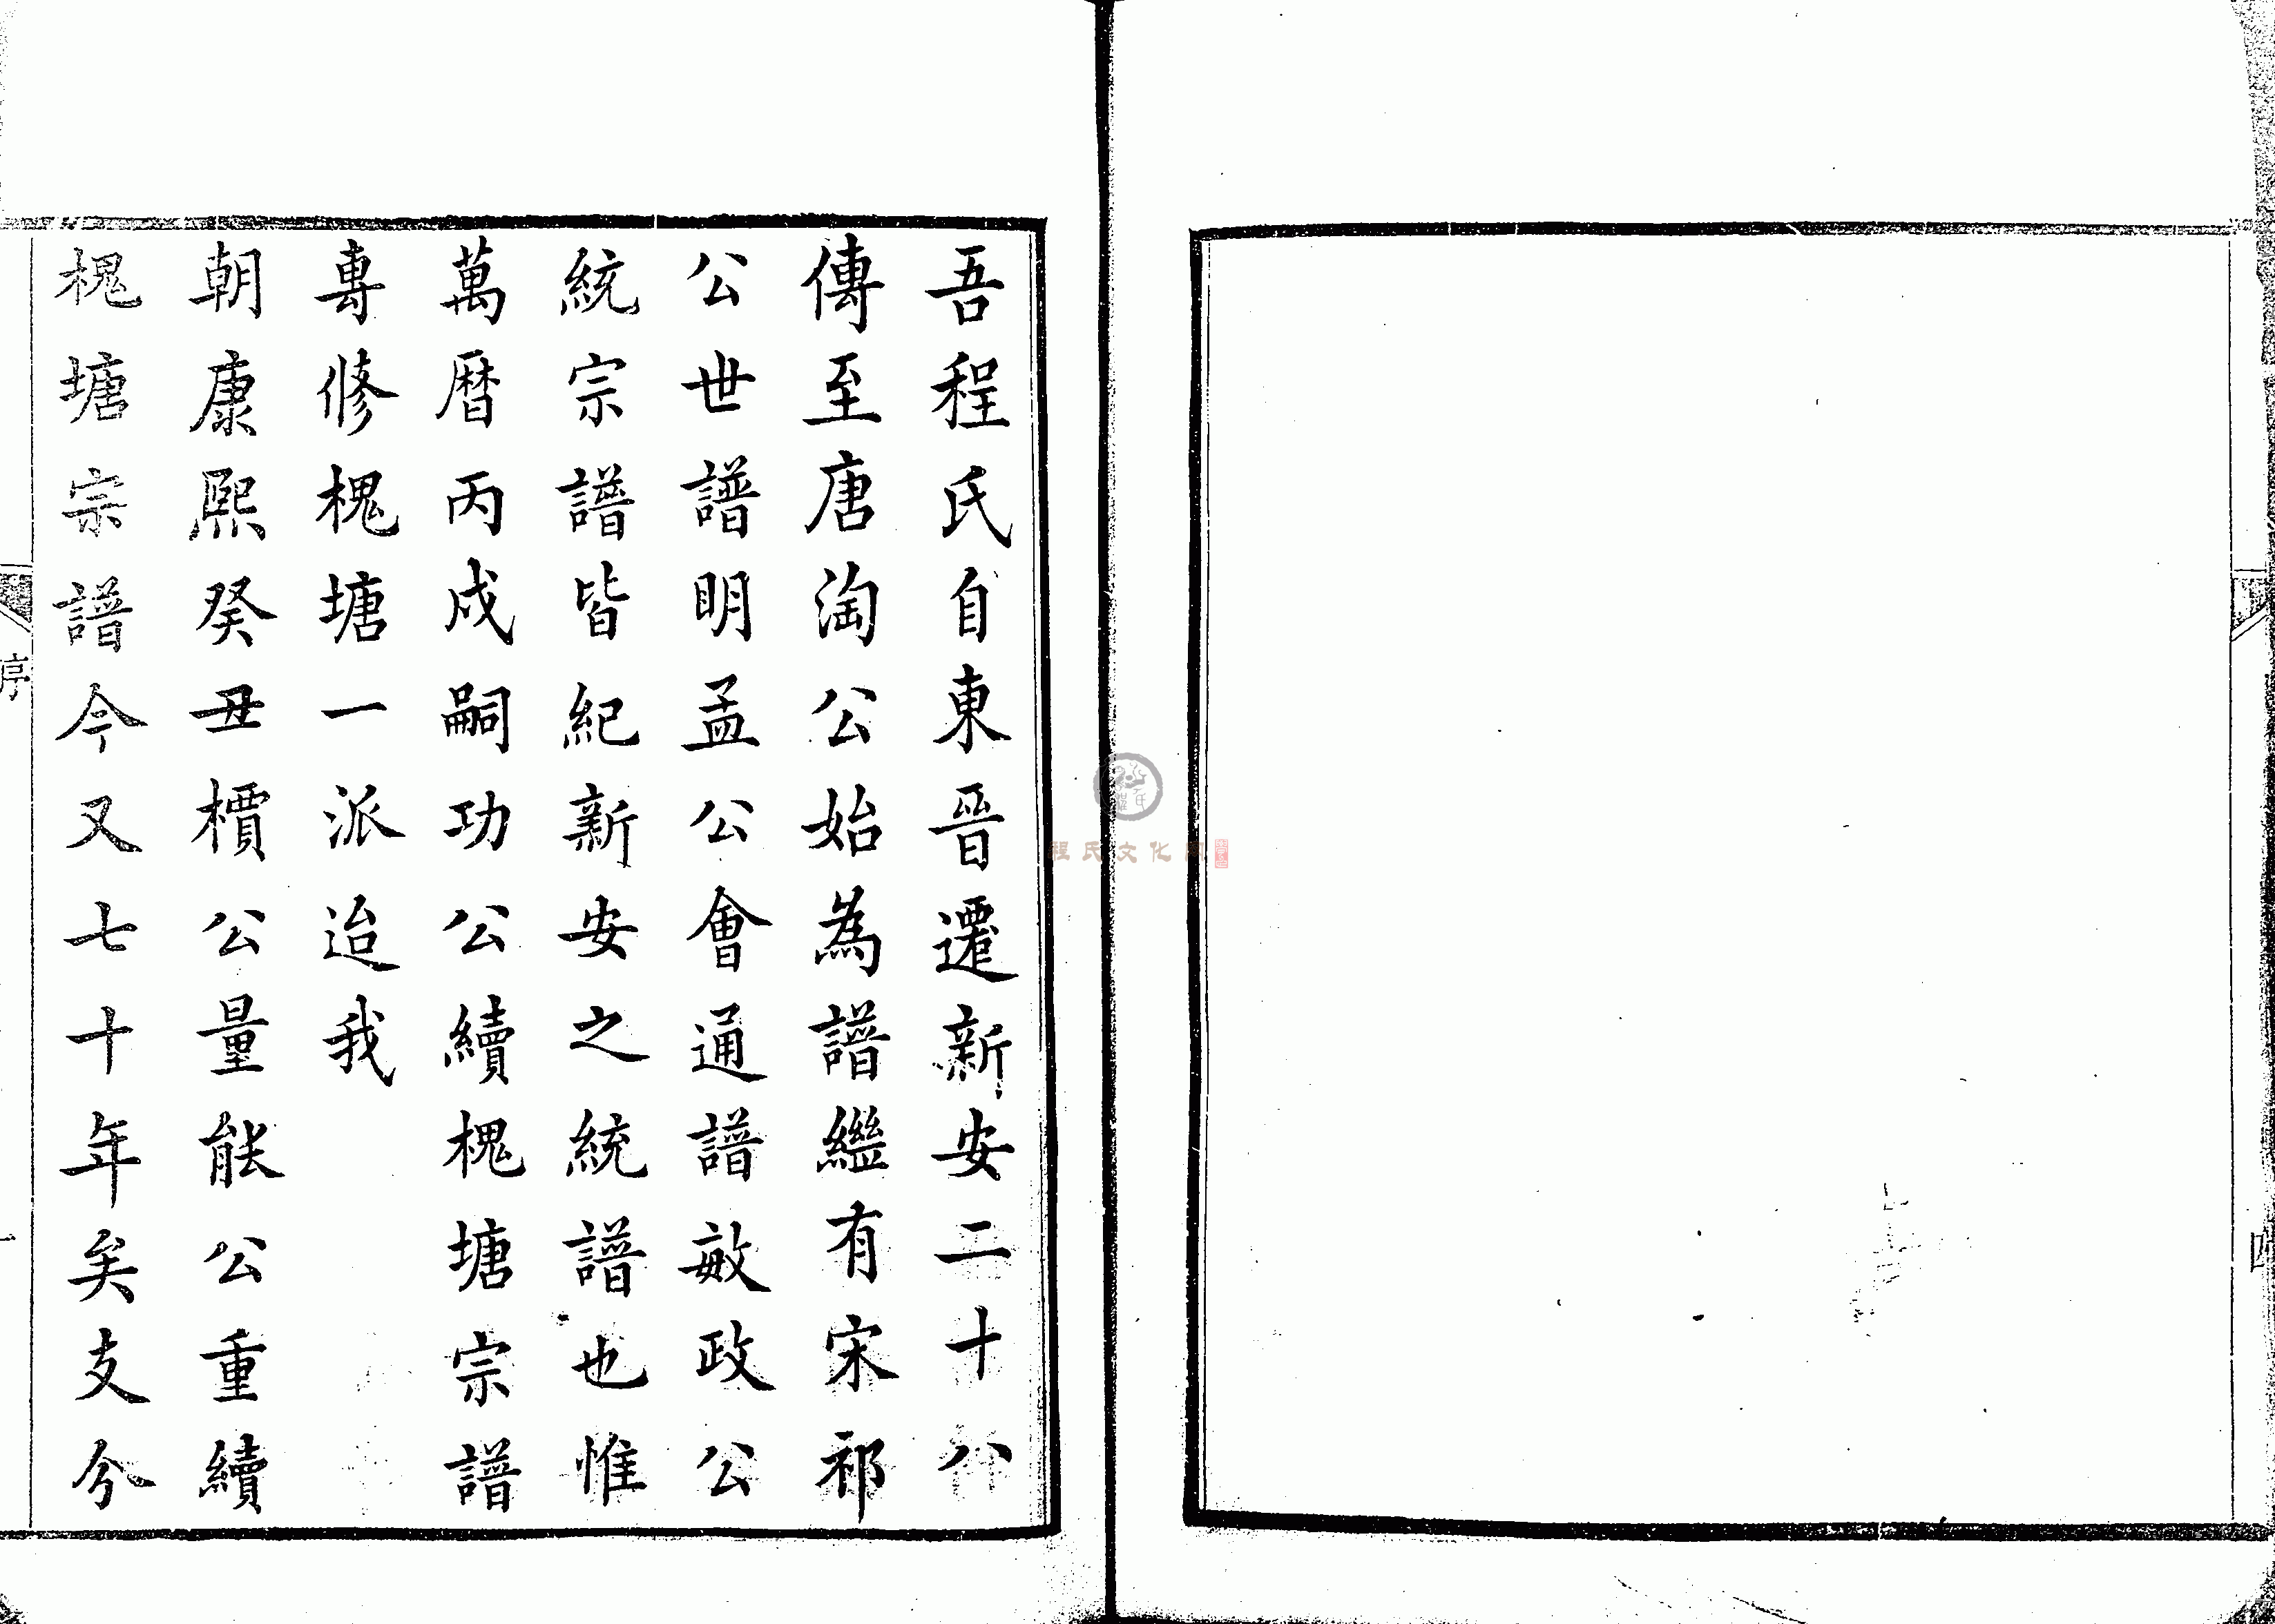 吾程氏自東晉遷新安二十八
傳至唐淘公始為譜繼有宋祁
公世譜明孟公會通譜敏政公
統宗譜皆紀新安之統譜也惟
萬暦丙戍嗣功公續槐塘宗譜
專修槐塘一派迨我
朝康熙癸丑櫝公量能公重續
槐塘宗譜今又七十年矣支分
序
一
四
程氏文化网